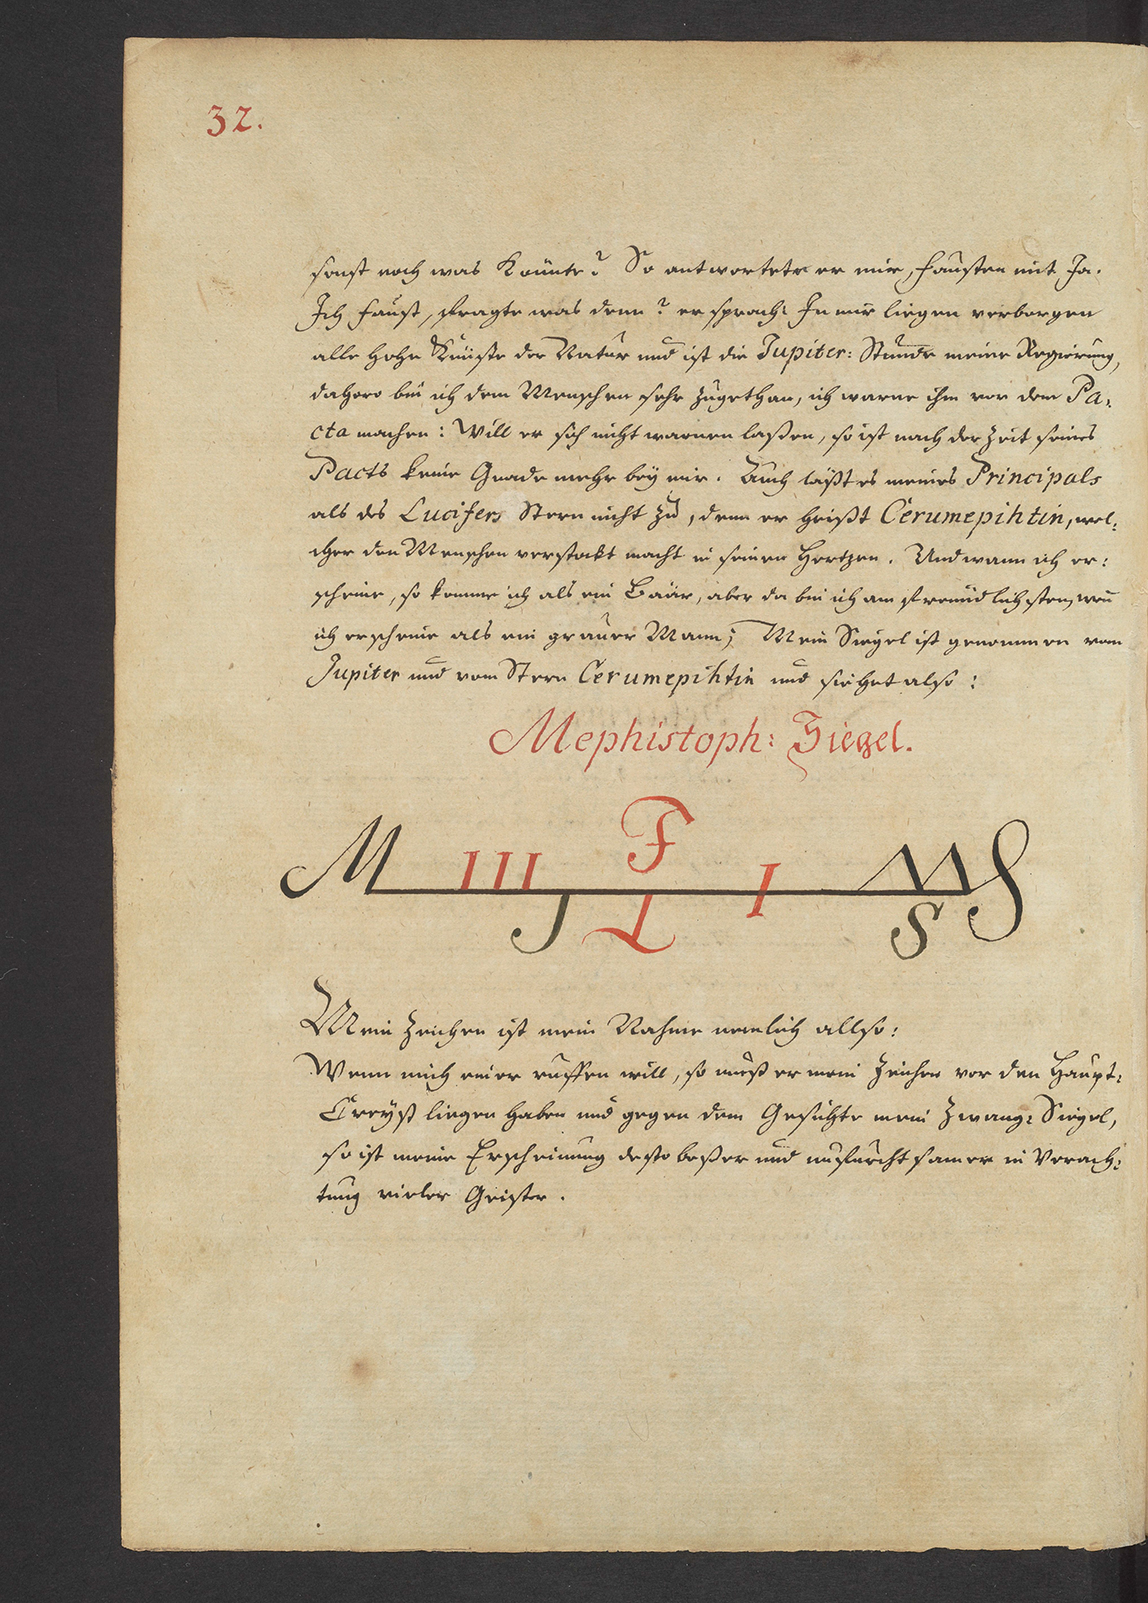 32.
sonst noch was Könnte? So antwortete er mir, Fausten mit Ja.
Ich Faust, fragte was denn? er sprach: In mir liegen verborgen
alle hohe Künste der Natur und ist die Jupiter: Stunde meine Regierung,
dahero bin ich dem Menschen sehr zugethan, ich warne ihn vor dem Pa:
cta machen: Will er sich nicht warnen laßen, so ist nach der Zeit seines
Pacts keine Gnade mehr bey mir. Auch läßt es meines Principals
als des Lucifers Stern nicht zu, denn er heißt Cerumepihtin, wel:
cher den Menschen verstockt macht in seinen Hertzen. Und wann ich er:
scheine, so komme ich als ein Baär, aber da bin ich am freundlichsten, wen̄
ich erscheine als ein grauer Mann; Mein Siegel ist genommen vom
Jupiter und vom Stern Cerumepihtin und siehet also:
Mephistoph: Siegel.
M III F I M S
J L S
Mein Zeichen ist mein Nahme nemlich allso:
Wenn mich einer ruffen will, so muß er mein Zeichen vor den Haupt:
Creyst liegen haben und gegen dem Gesichte mein Zwang: Siegel,
so ist meine Erscheinung desto beßer und in Verach:
tung vieler Geister.